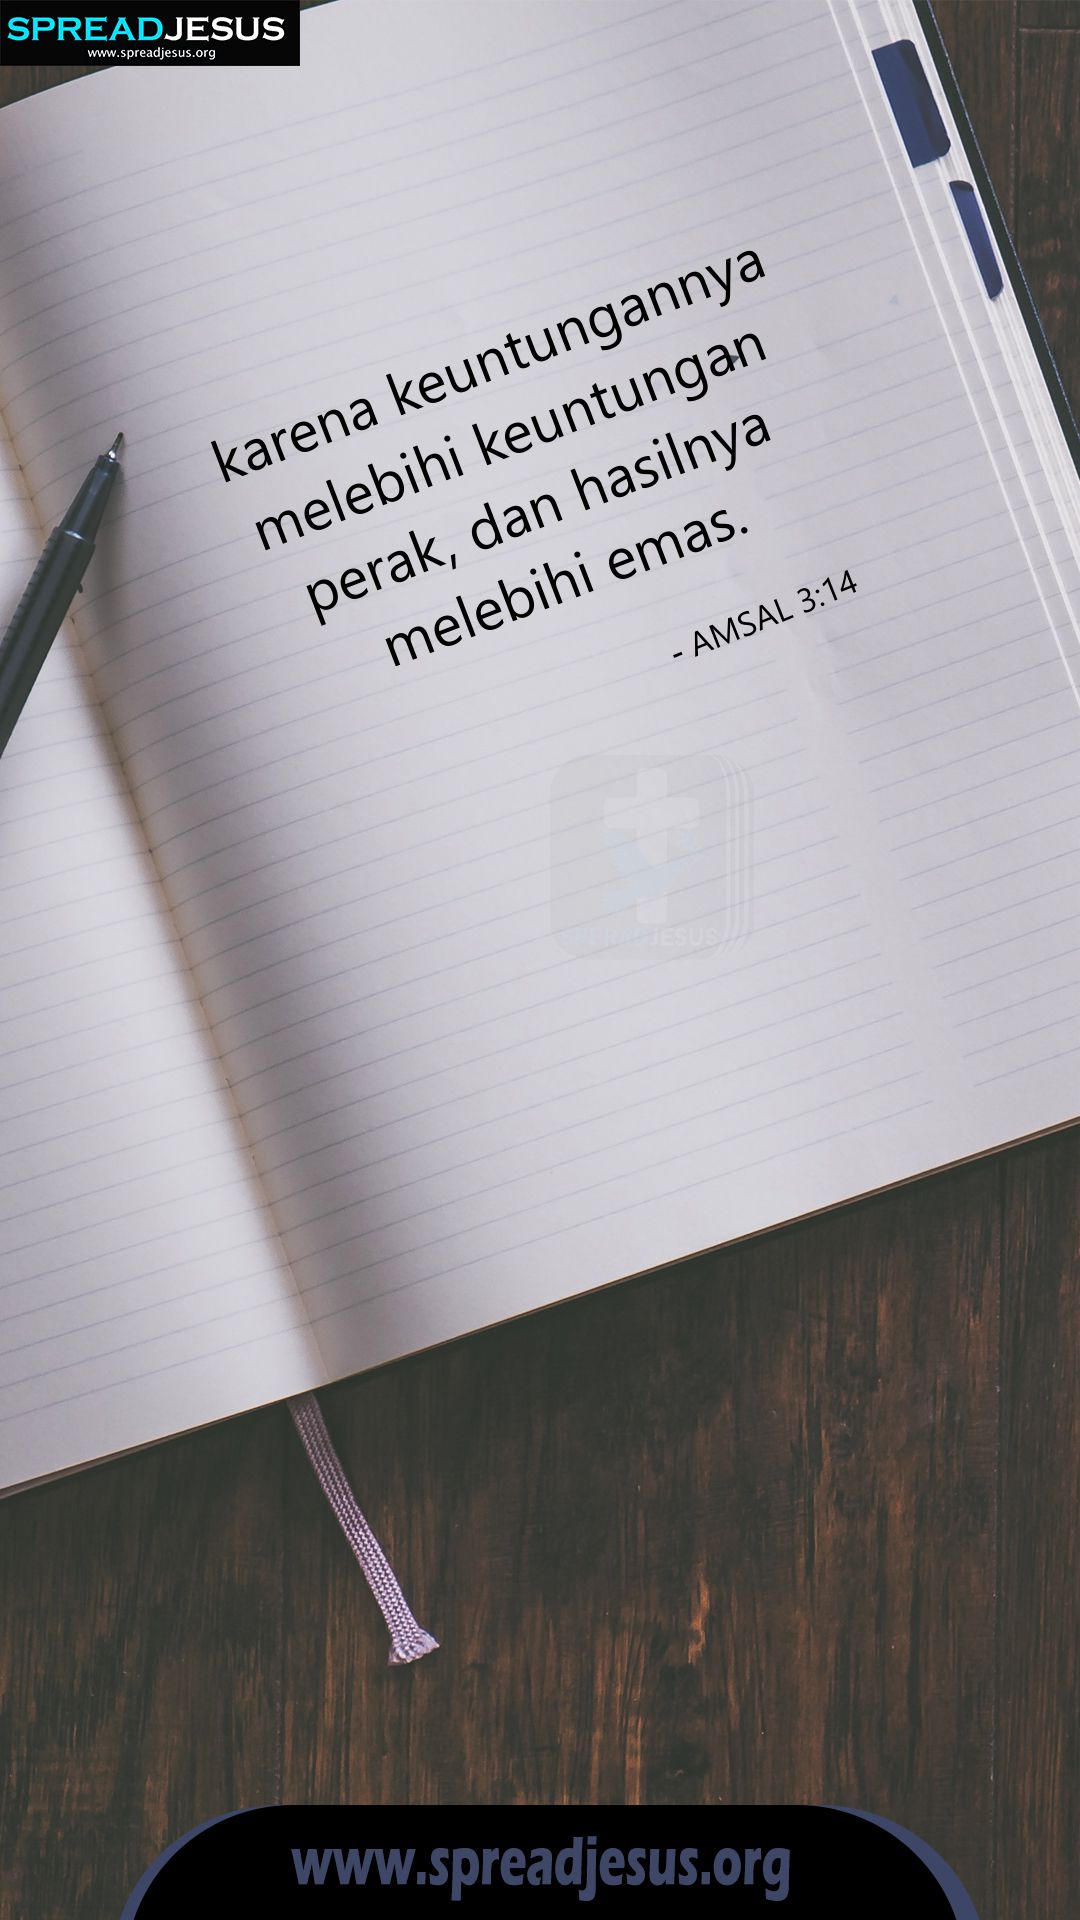 SPREADJESUS
www.spreadjesus.org
karena keuntungannya
melebihi keuntungan
perak, dan hasilnya
melebihi emas.
- AMSAL 3:14
SPREADJESUS
www.spreadjesus.org